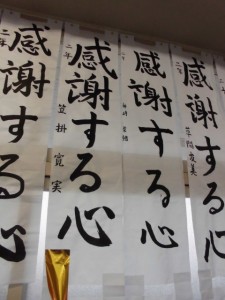 感謝する心
二年
感謝する心
二年
笠掛 寛実
感謝する心
感謝する心
二年